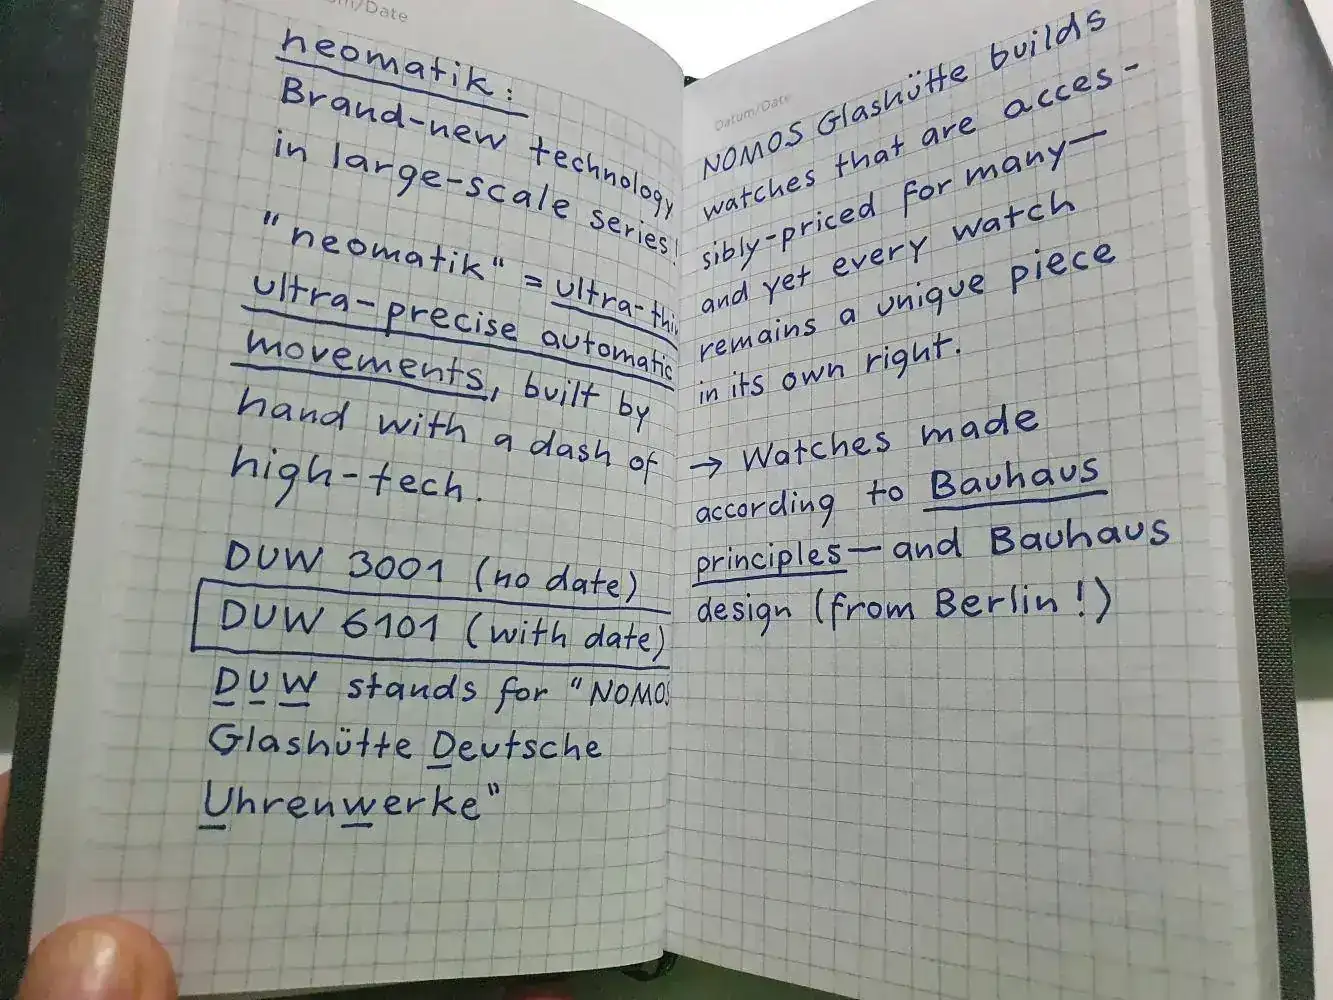 Datum/Date
neomatik:
Brand-new technology
in large-scale series!
"neomatik" = ultra-thin
ultra-precise automatic
movements, built by
hand with a dash of
high-tech.
DUW 3001 (no date)
DUW 6101 (with date)
DUW stands for "NOMOS
Glashütte Deutsche
Uhrenwerke"
Datum/Date
NOMOS Glashütte builds
watches that are acces-
sibly-priced for many—
and yet every watch
remains a unique piece
in its own right.
→ Watches made
according to Bauhaus
principles—and Bauhaus
design (from Berlin!)